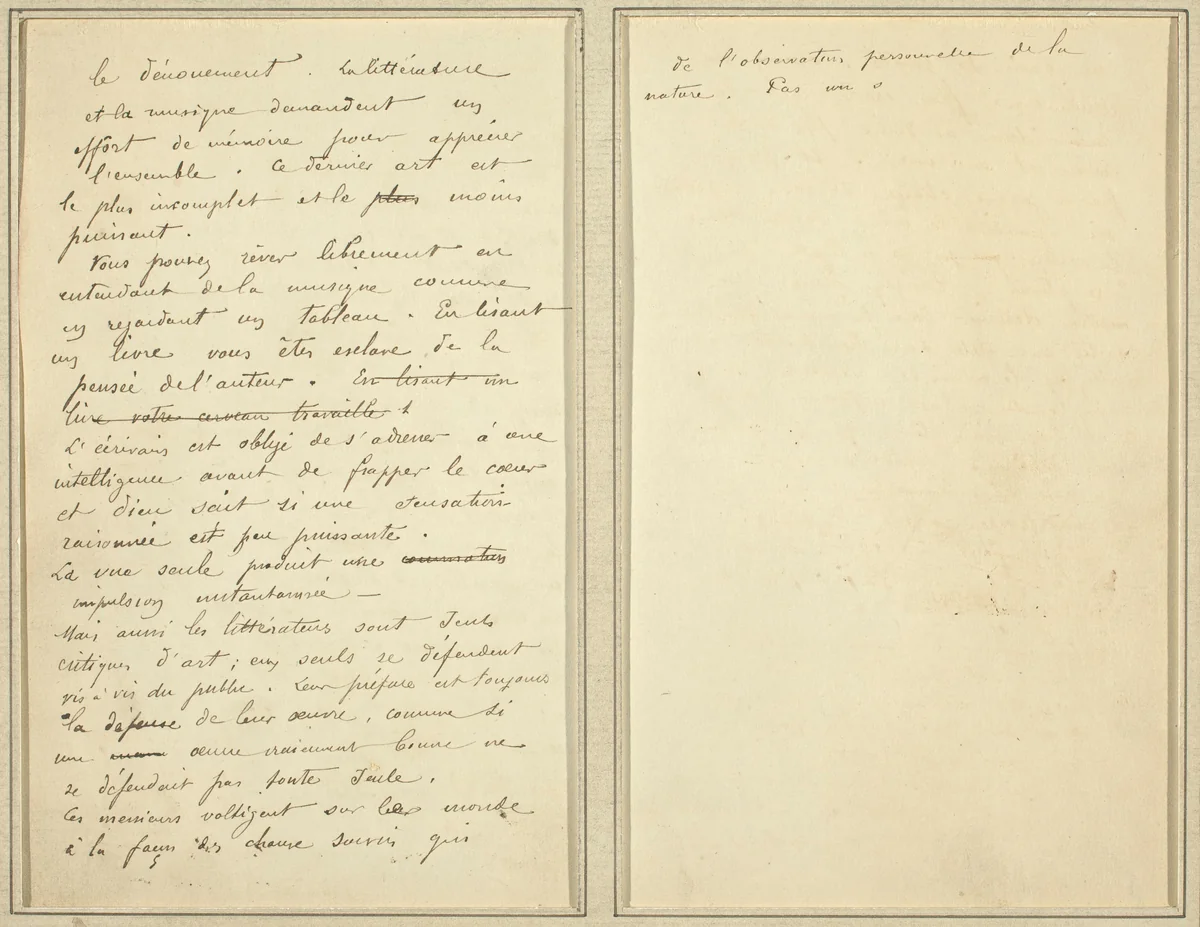 le dénouement. La littérature
et la musique demandent un
effort de mémoire pour apprécier
l'ensemble. Ce dernier art est
le plus incomplet et le plus moins
puissant.
Vous pouvez rêver librement en
entendant de la musique comme
en regardant un tableau. En lisant
un livre vous êtes esclave de la
pensée de l'auteur. En lisant un
livre votre cerveau travaille
L'écrivain est obligé de s'adresser à une
intelligence avant de frapper le cœur
et dieu sait si une sensation
raisonnée est peu puissante.
La vue seule produit une
impulsion instantannée —
Mais aussi les littérateurs sont seuls
critiques d'art ; eux seuls se défendent
vis à vis du public. Leur préface est toujours
la défense de leur œuvre, comme si
une œuvre vraiment bonne ne
se défendait pas toute seule.
Ces messieurs voltigent sur le monde
à la façon des chauve souris qui
de l'observation personnelle de la
nature. Pas un s